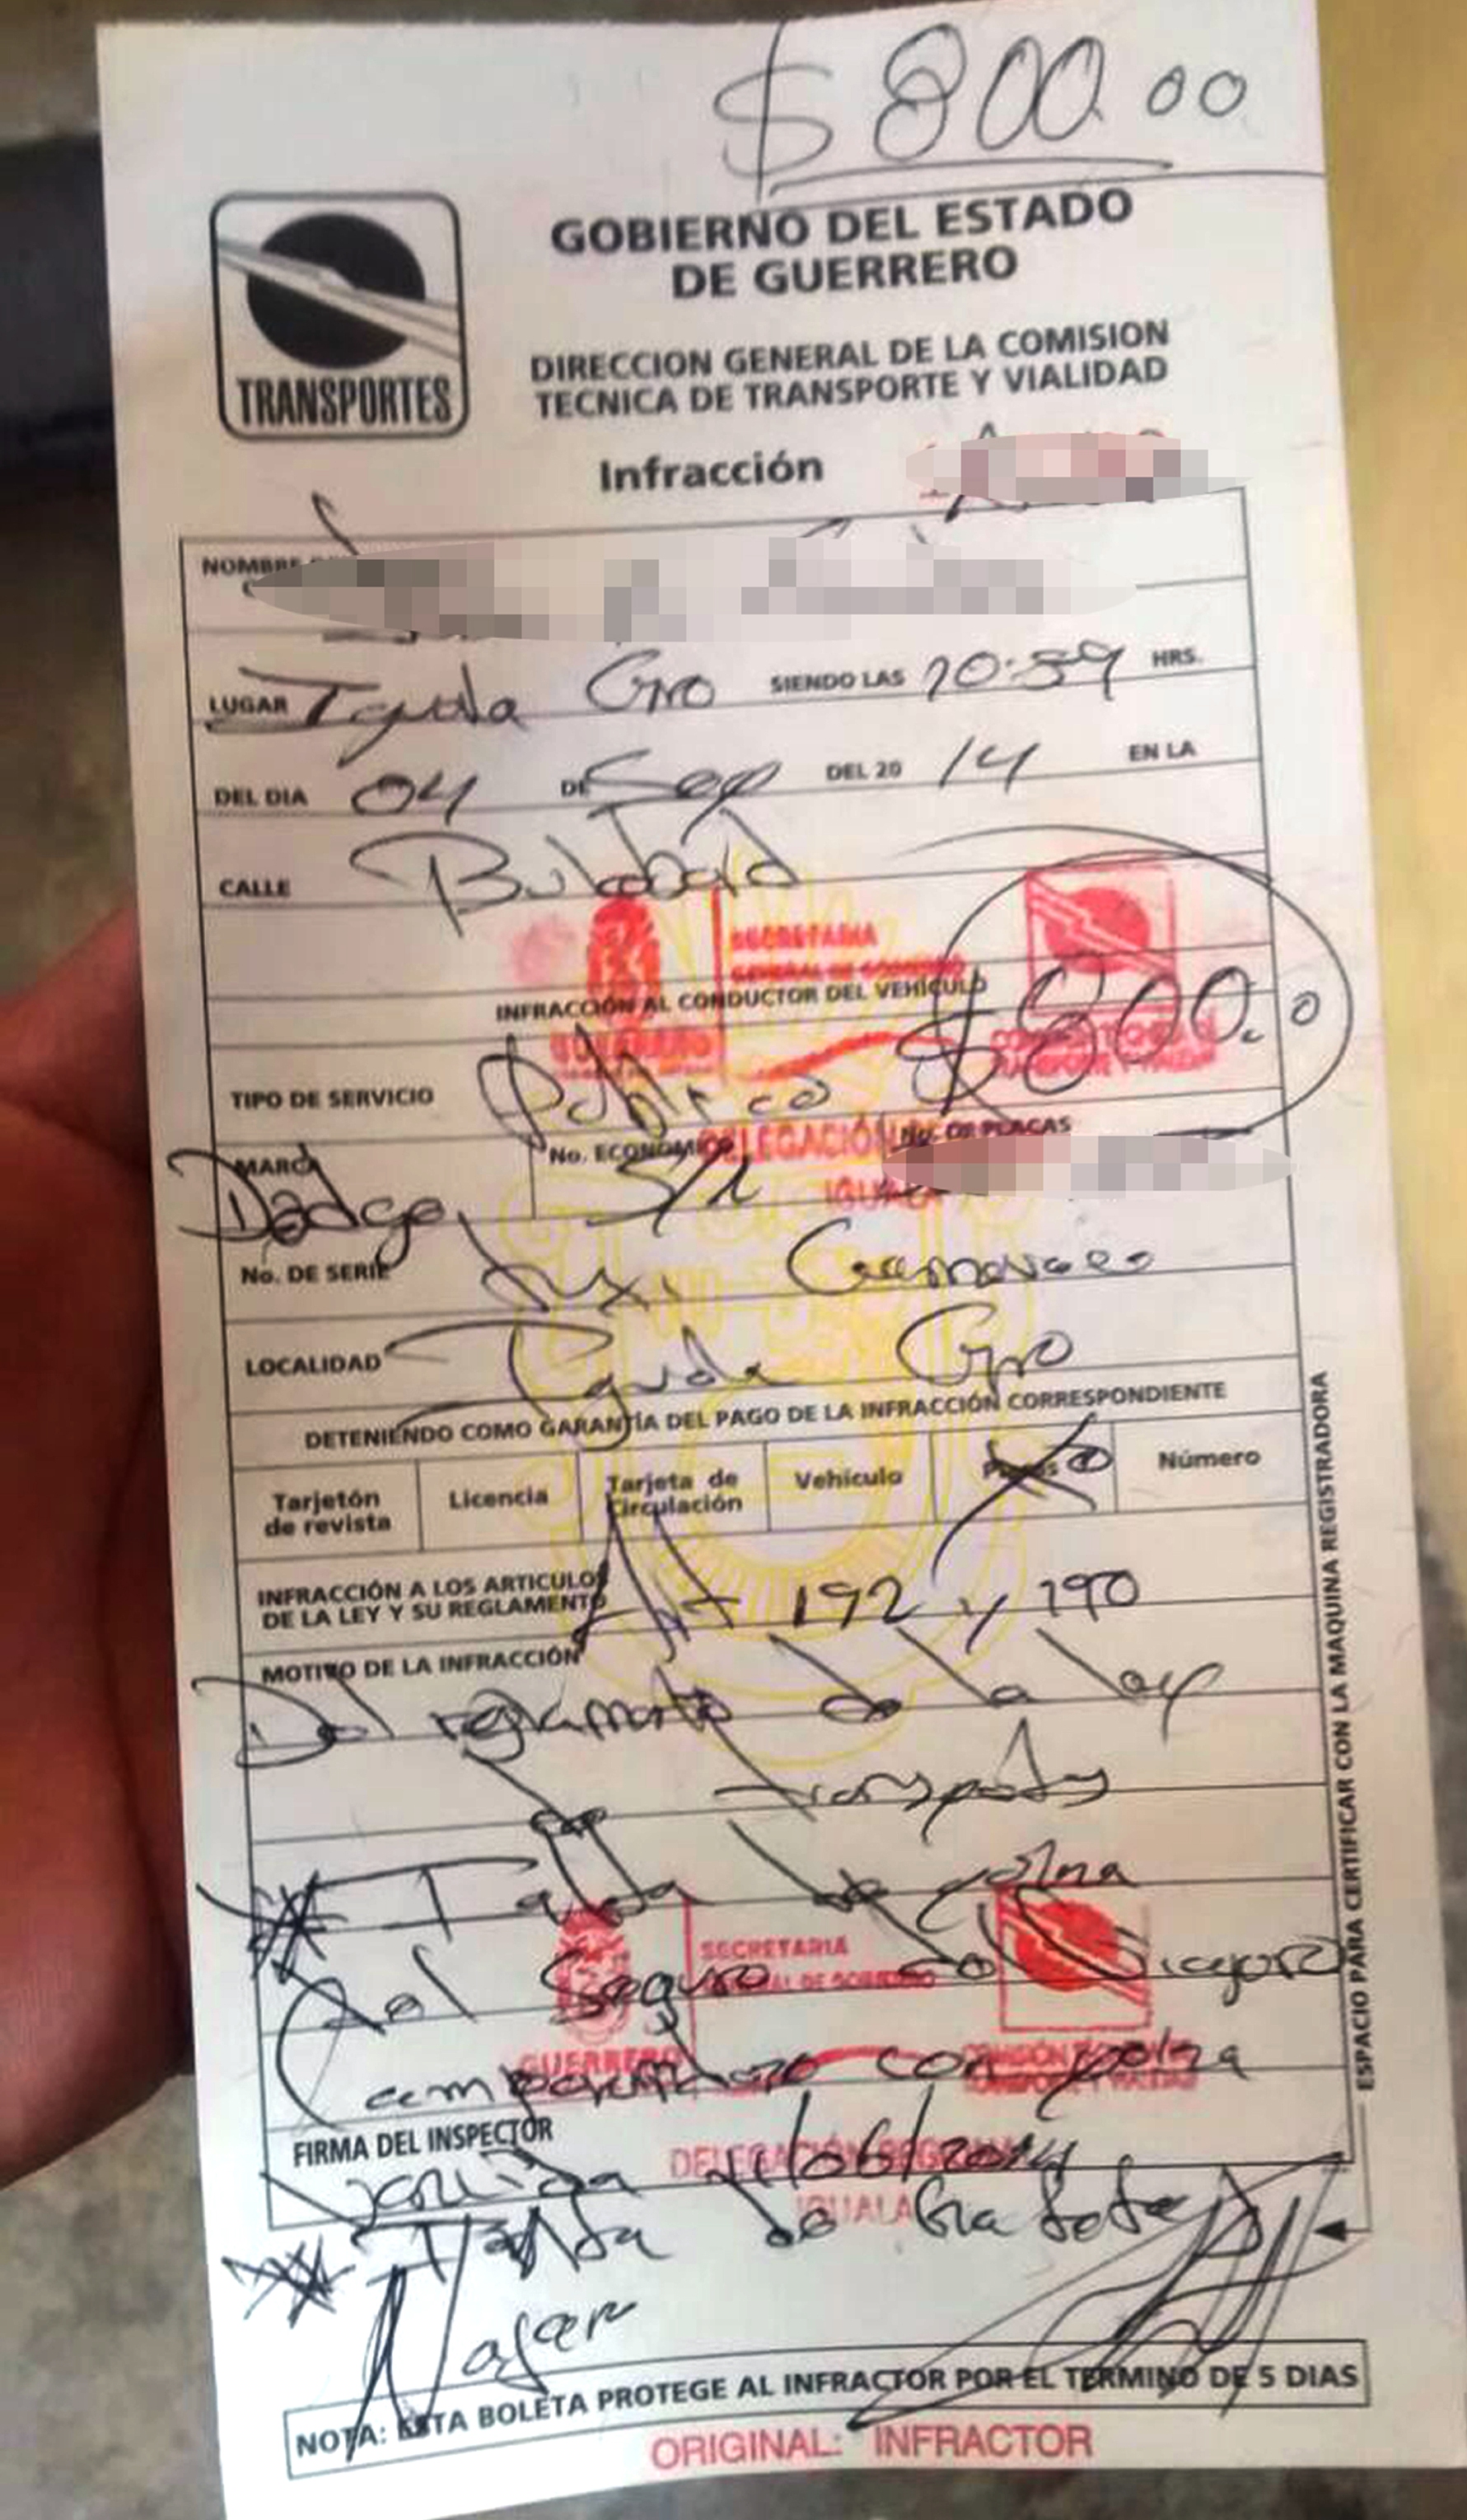 $800.00
TRANSPORTES
GOBIERNO DEL ESTADO
DE GUERRERO
DIRECCION GENERAL DE LA COMISION
TECNICA DE TRANSPORTE Y VIALIDAD
Infracción
NOMBRE
LUGAR Iguala Gro SIENDO LAS 10:59 HRS.
DEL DIA 04 DE Sep DEL 20 14 EN LA
CALLE
SECRETARIA
GENERAL DE GOBIERNO
INFRACCIÓN AL CONDUCTOR DEL VEHÍCULO
GUERRERO
$800.0
TIPO DE SERVICIO Público
MARCA No. ECONOMICO No. DE PLACAS
DELEGACIÓN
IGUALA
Dodge
No. DE SERIE
LOCALIDAD Iguala Gro
DETENIENDO COMO GARANTÍA DEL PAGO DE LA INFRACCIÓN CORRESPONDIENTE
Tarjetón de revista Licencia Tarjeta de Circulación Vehículo Placas Número
INFRACCIÓN A LOS ARTICULOS
DE LA LEY Y SU REGLAMENTO Art 192 y 190
MOTIVO DE LA INFRACCIÓN
Del reglamento de la ley
de
Falta de
del Seguro de
SECRETARIA
GENERAL DE GOBIERNO
GUERRERO
con
FIRMA DEL INSPECTOR
DELEGACIÓN REGIONAL
IGUALA
11/06/2014
Falta de
NOTA: ESTA BOLETA PROTEGE AL INFRACTOR POR EL TERMINO DE 5 DIAS
ORIGINAL: INFRACTOR
ESPACIO PARA CERTIFICAR CON LA MAQUINA REGISTRADORA